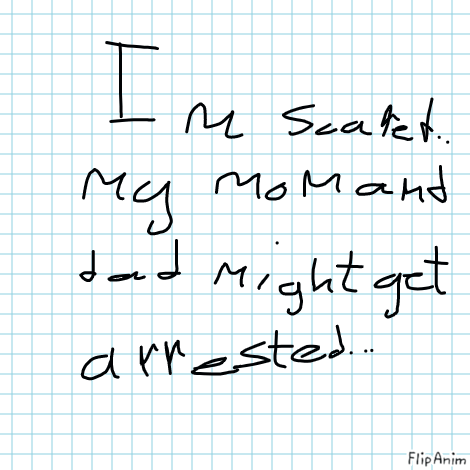 I'm scared..
My mom and
dad might get
arrested...
FlipAnim